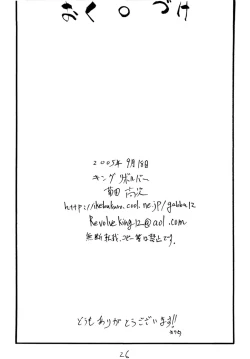 おく○づけ
2005年 9月18日
キングリボルバー
菊田 高次
http://ikebukuro.cool.ne.jp/gabba12
Revolveking12@aol.com
無断転載、コピー等は禁止です。
どうもありがとうございます!!
26